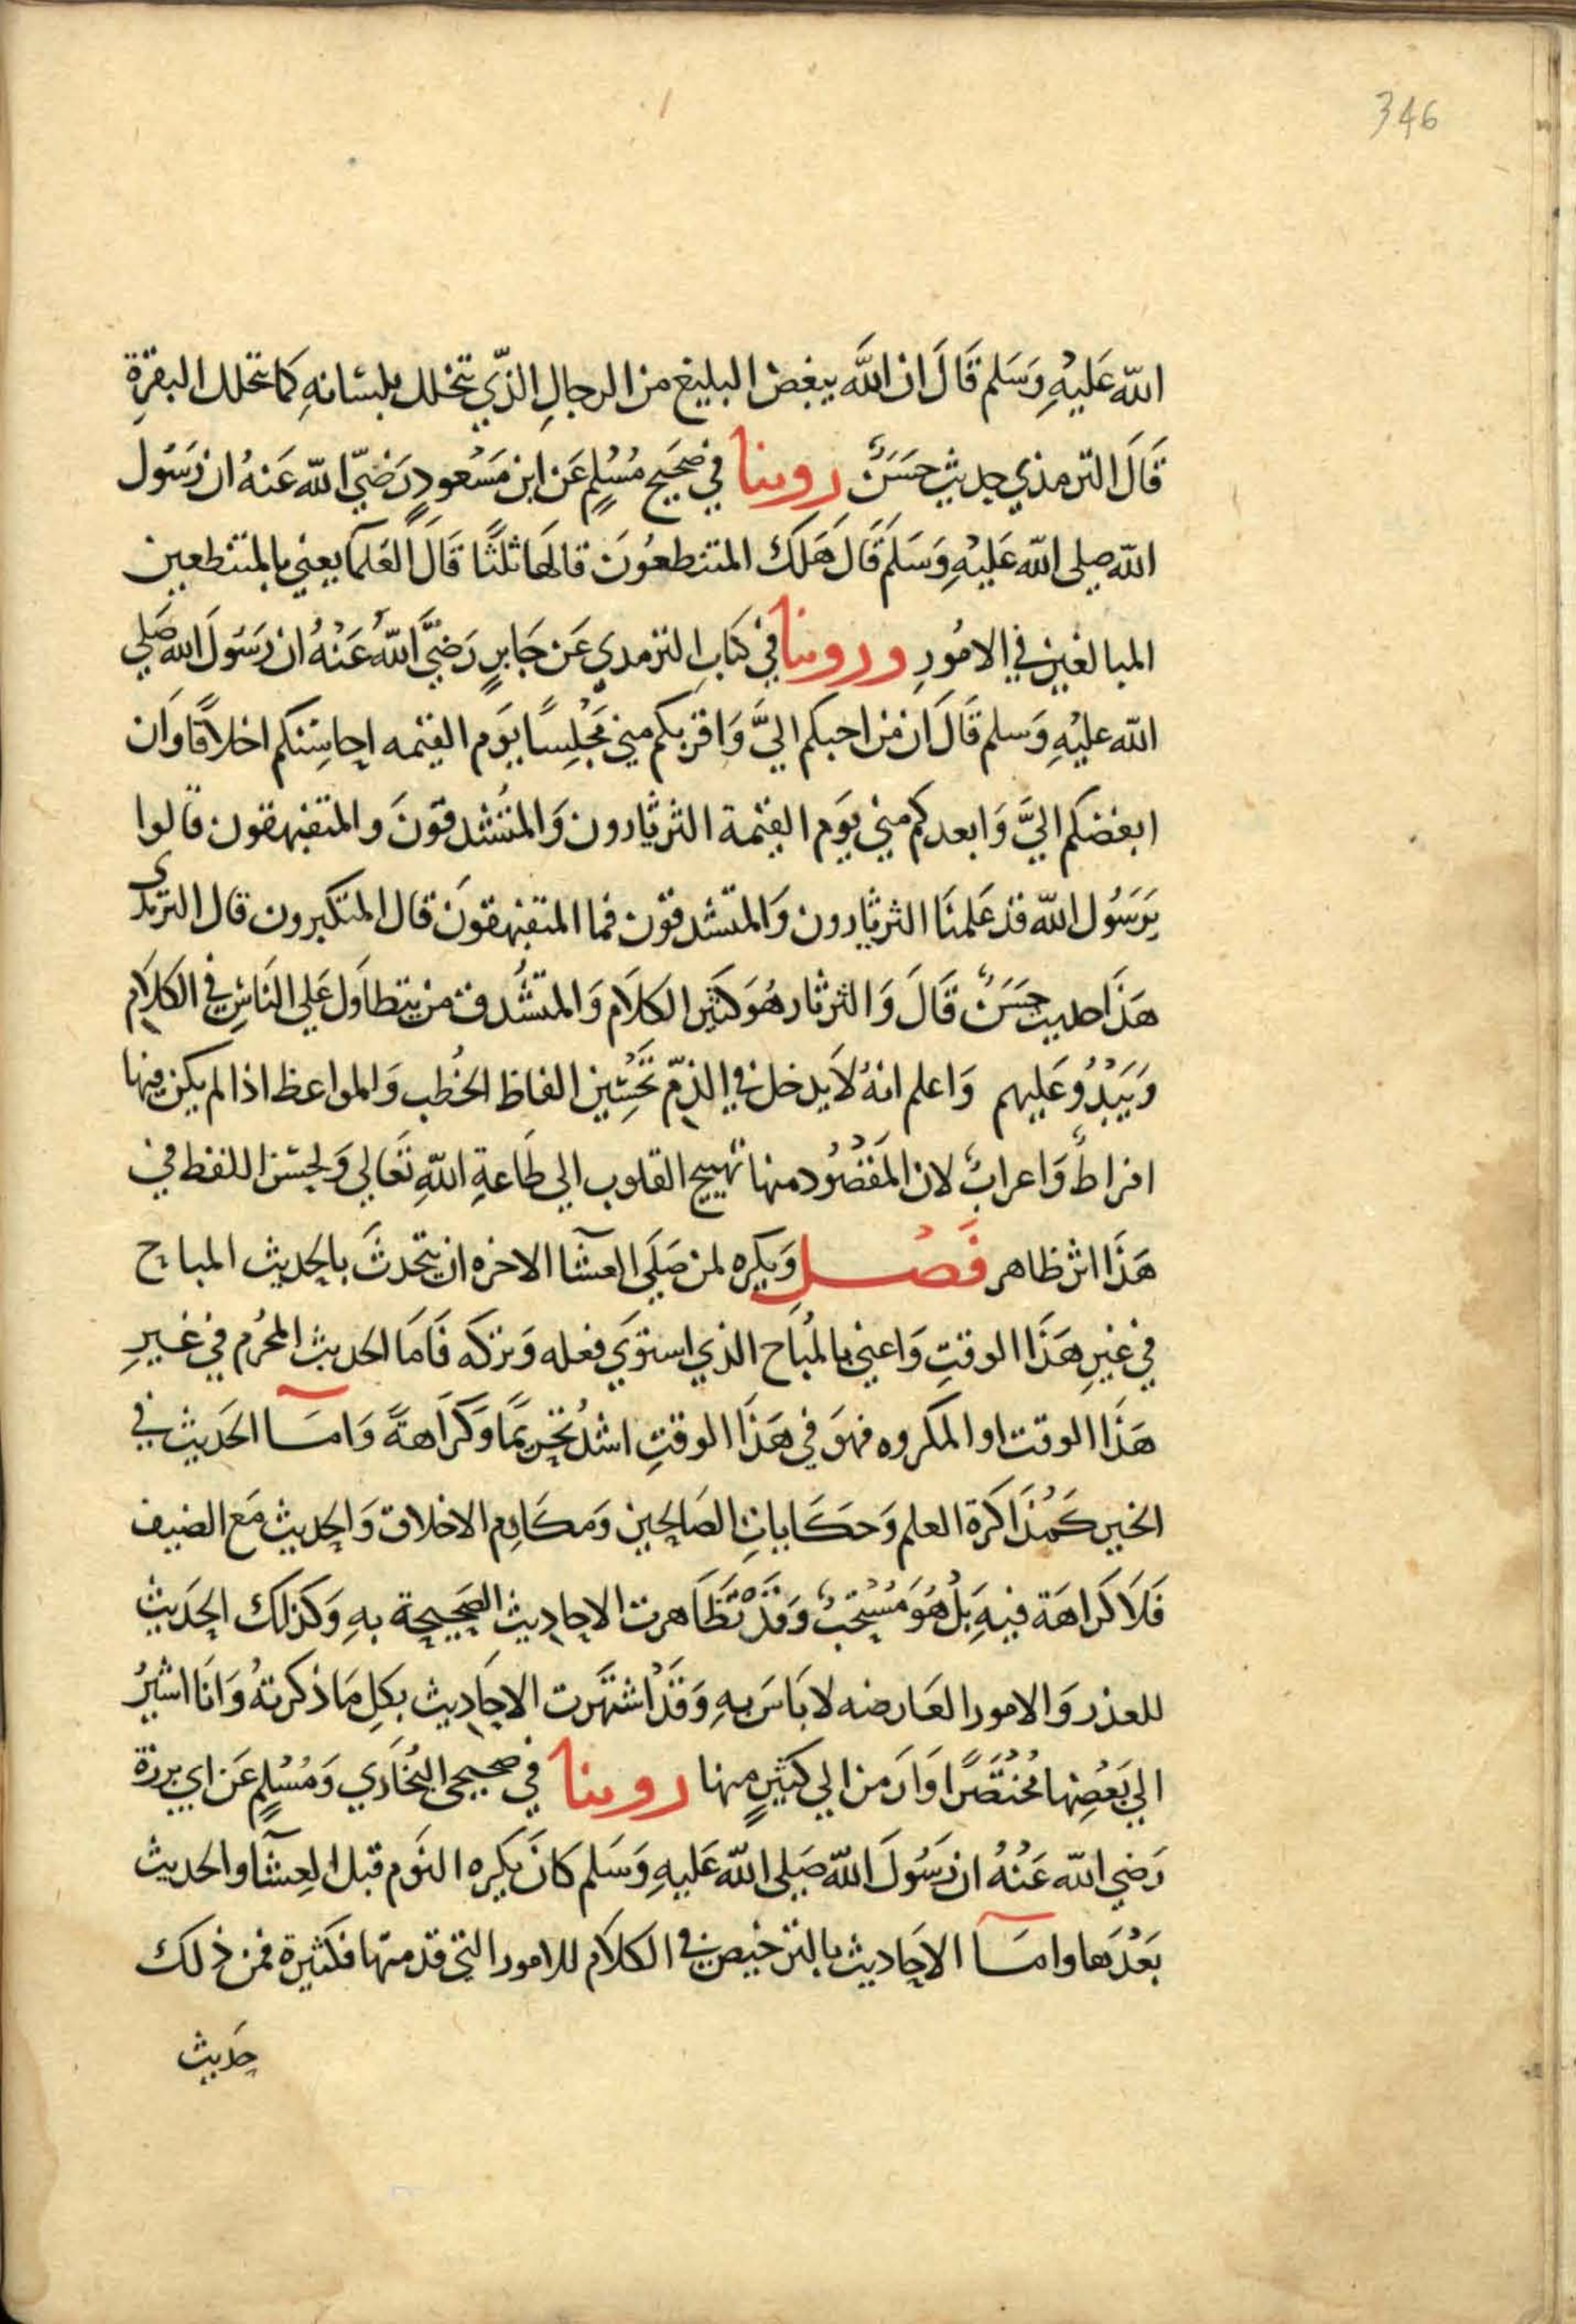 346
الله عَليْهِ وَسَلم قَالَ ان اللَّه يبغض البليغ من الرجالِ الذّي يتخلل بلسانهِ كما تتخلل البقرة
قَالَ الترمذي حديث حسَنٌ روينا في صَحيح مُسْلمٍ عَن ابن مَسْعودٍ رَضيَ الله عَنهُ ان رَسَول
الله صلى الله عَليْهِ وَسَلمَ قَالَ هَلَكَ المتنطعُونَ قالهَا ثلثًا قَالَ العَلما يعني بالمتنطعين
المبالغين في الامُورِ وروينا في كتابِ الترمدي عَن جَابرٍ رَضيَّ اللهُ عَنْهُ ان رَسَولَ الله صَلي
الله عليْهِ وَسلم قَالَ ان من احبكم اليَّ وَاقربكم مني مَجْلِسًا يَوَم القيٰمه احاسِنكم اخلاقًا وَان
ابغضكم اليَّ وَابعدكم مني يَوَم القيٰمة الثرثارون وَالمتشدقونَ والمتفيهقون قالوا
يَرسَوُل الله قد عَلمنَا الثرثارون وَالمتشدقون فما المتفيهقونَ قال المتكبرون قال الترمذي
هَذَا حديث حسَنٌ قَالَ وَالثرثار هُوَ كثير الكلاَم وَالمتشُدق من يتطاوَل عَلي النَاسِ في الكلاَم
وَيَبْذُو عَليهم وَاعلم انهُ لاَ يدخل في الذمّ تحْسِين الفاظ الخُطب وَالمواعظ اذا لم يكن فيها
افراطٌ وَاعرابٌ لان المَقصُود منها تهييج القلوب الي طَاعةِ اللهِ تعَالي وَلحسن اللفظ في
هَذَا اثر ظاهر فَصْل وَيكره لمن صَلَى العشَا الاخره ان يتحدثَ بالحديث المباح
في غيرِ هَذَا الوقتِ وَاعني بالمُبَاح الذي استوَي فعله وَتركه فَامَا الحديث المحُرم في غيرِ
هَذَا الوقت او المكروه فهوَ في هَذَا الوقتِ اشدُ تحريمًا وَكَرَاهةً وَامَا الحَديث في
الخير كَمُذَاكرة العلم وَحكَاياتِ الصَالحين وَمكَارم الاخلاق وَالحديث مَع الضيف
فَلاَ كَرَاهَة فيهِ بَلْ هُوَ مُسْتحَبٌ وَقدْ تظَاهرت الاحاديث الصَحيحة بهِ وَكذلك الحَديث
للعذر وَالامور العَارضه لا بَاسَ بهِ وَقدْ اشتهَرت الاحَاديث بكلِ مَا ذكرتهُ وَانَا اشيرُ
الي بَعْضِهَا مُختصَرًا وَارمز الي كَثيرٍ منها روينا في صحيحي البُخَاري وَمُسْلمٍ عَن ابي برزة
رَضي الله عَنْهُ ان رَسَولَ الله صَلى الله عَليهِ وَسَلم كانَ يكره النوَم قبل العِشَا والحديث
بَعْدَها وامَا الاحَاديث بالترخيص في الكلاَم للامور التي قدمتها فكثيرة فمن ذلك
حَديث